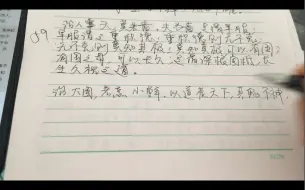 59
治人事天,莫若啬。夫为啬,是谓早服。
早服谓之重积德,重积德则无不克,
无不克则莫知其极,莫知其极可以有国,
有国之母,可以长久,是谓深根固柢,长
生久视之道。
治大国,若烹小鲜,以道莅天下,其鬼不神,